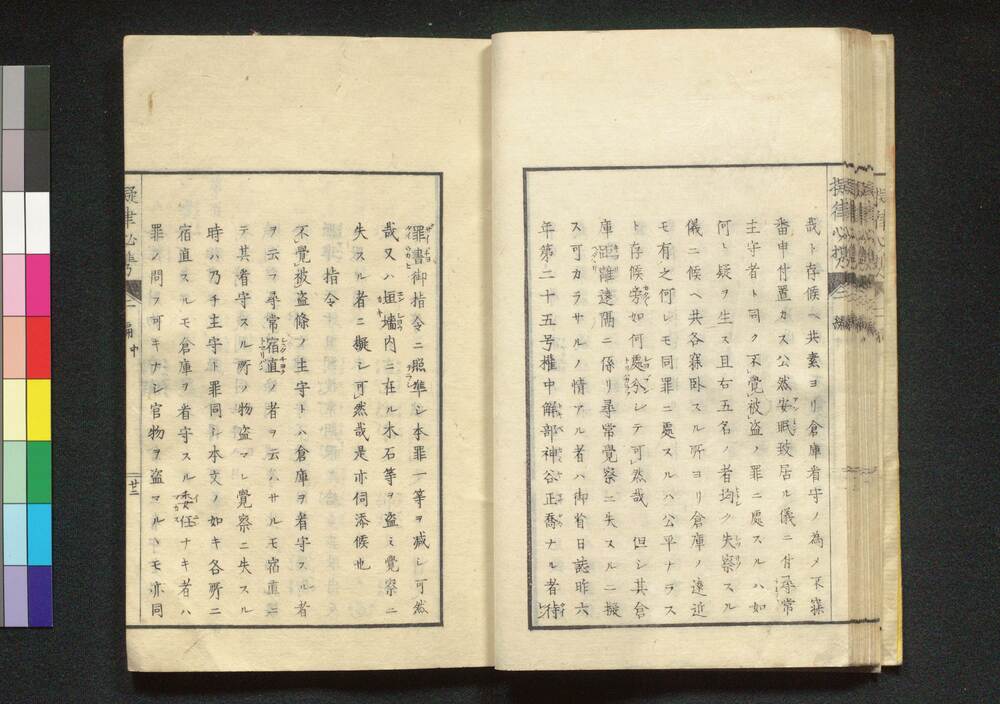 哉ト存候ヘ共素ヨリ倉庫看守ノ為メ不寐
番申付置カス公然安眠致居ル儀ニ付尋常
主守者ト同ク不覺被盗ノ罪ニ處スルハ如
何ト疑ヲ生ス且右五名ノ者均ク失察スル
儀ニ候ヘ共各寐臥スル所ヨリ倉庫ノ遠近
モ有之何レモ同罪ニ處スルハ公平ナラス
ト存候旁如何處分シテ可然哉 但シ其倉
庫距離遠隔ニ係リ尋常覺察ニ失スルニ擬
ス可カラサルノ情アル者ハ御省日誌昨六
年第二十五号権中解部神谷正喬ナル者待
罪書御指令ニ照準シ本罪一等ヲ減シ可然
哉又ハ垣墻内ニ在ル木石等ヲ盗ミ覺察ニ
失スル者ニ擬シ可然哉是亦伺添候也
指令
不覺被盗條ノ主守トハ倉庫ヲ看守スル者
ヲ云フ尋常宿直ノ者ヲ云ハサルモ宿直ニ
テ其看守スル所ノ物盗マレ覺察ニ失スル
時ハ乃チ主守ト罪同シ本文ノ如キ各所ニ
宿直スルモ倉庫ヲ看守スルノ委任ナキ者ハ
罪ノ問フ可キナシ官物ヲ盗マルヽモ亦同
擬律必携 一編中 廿二